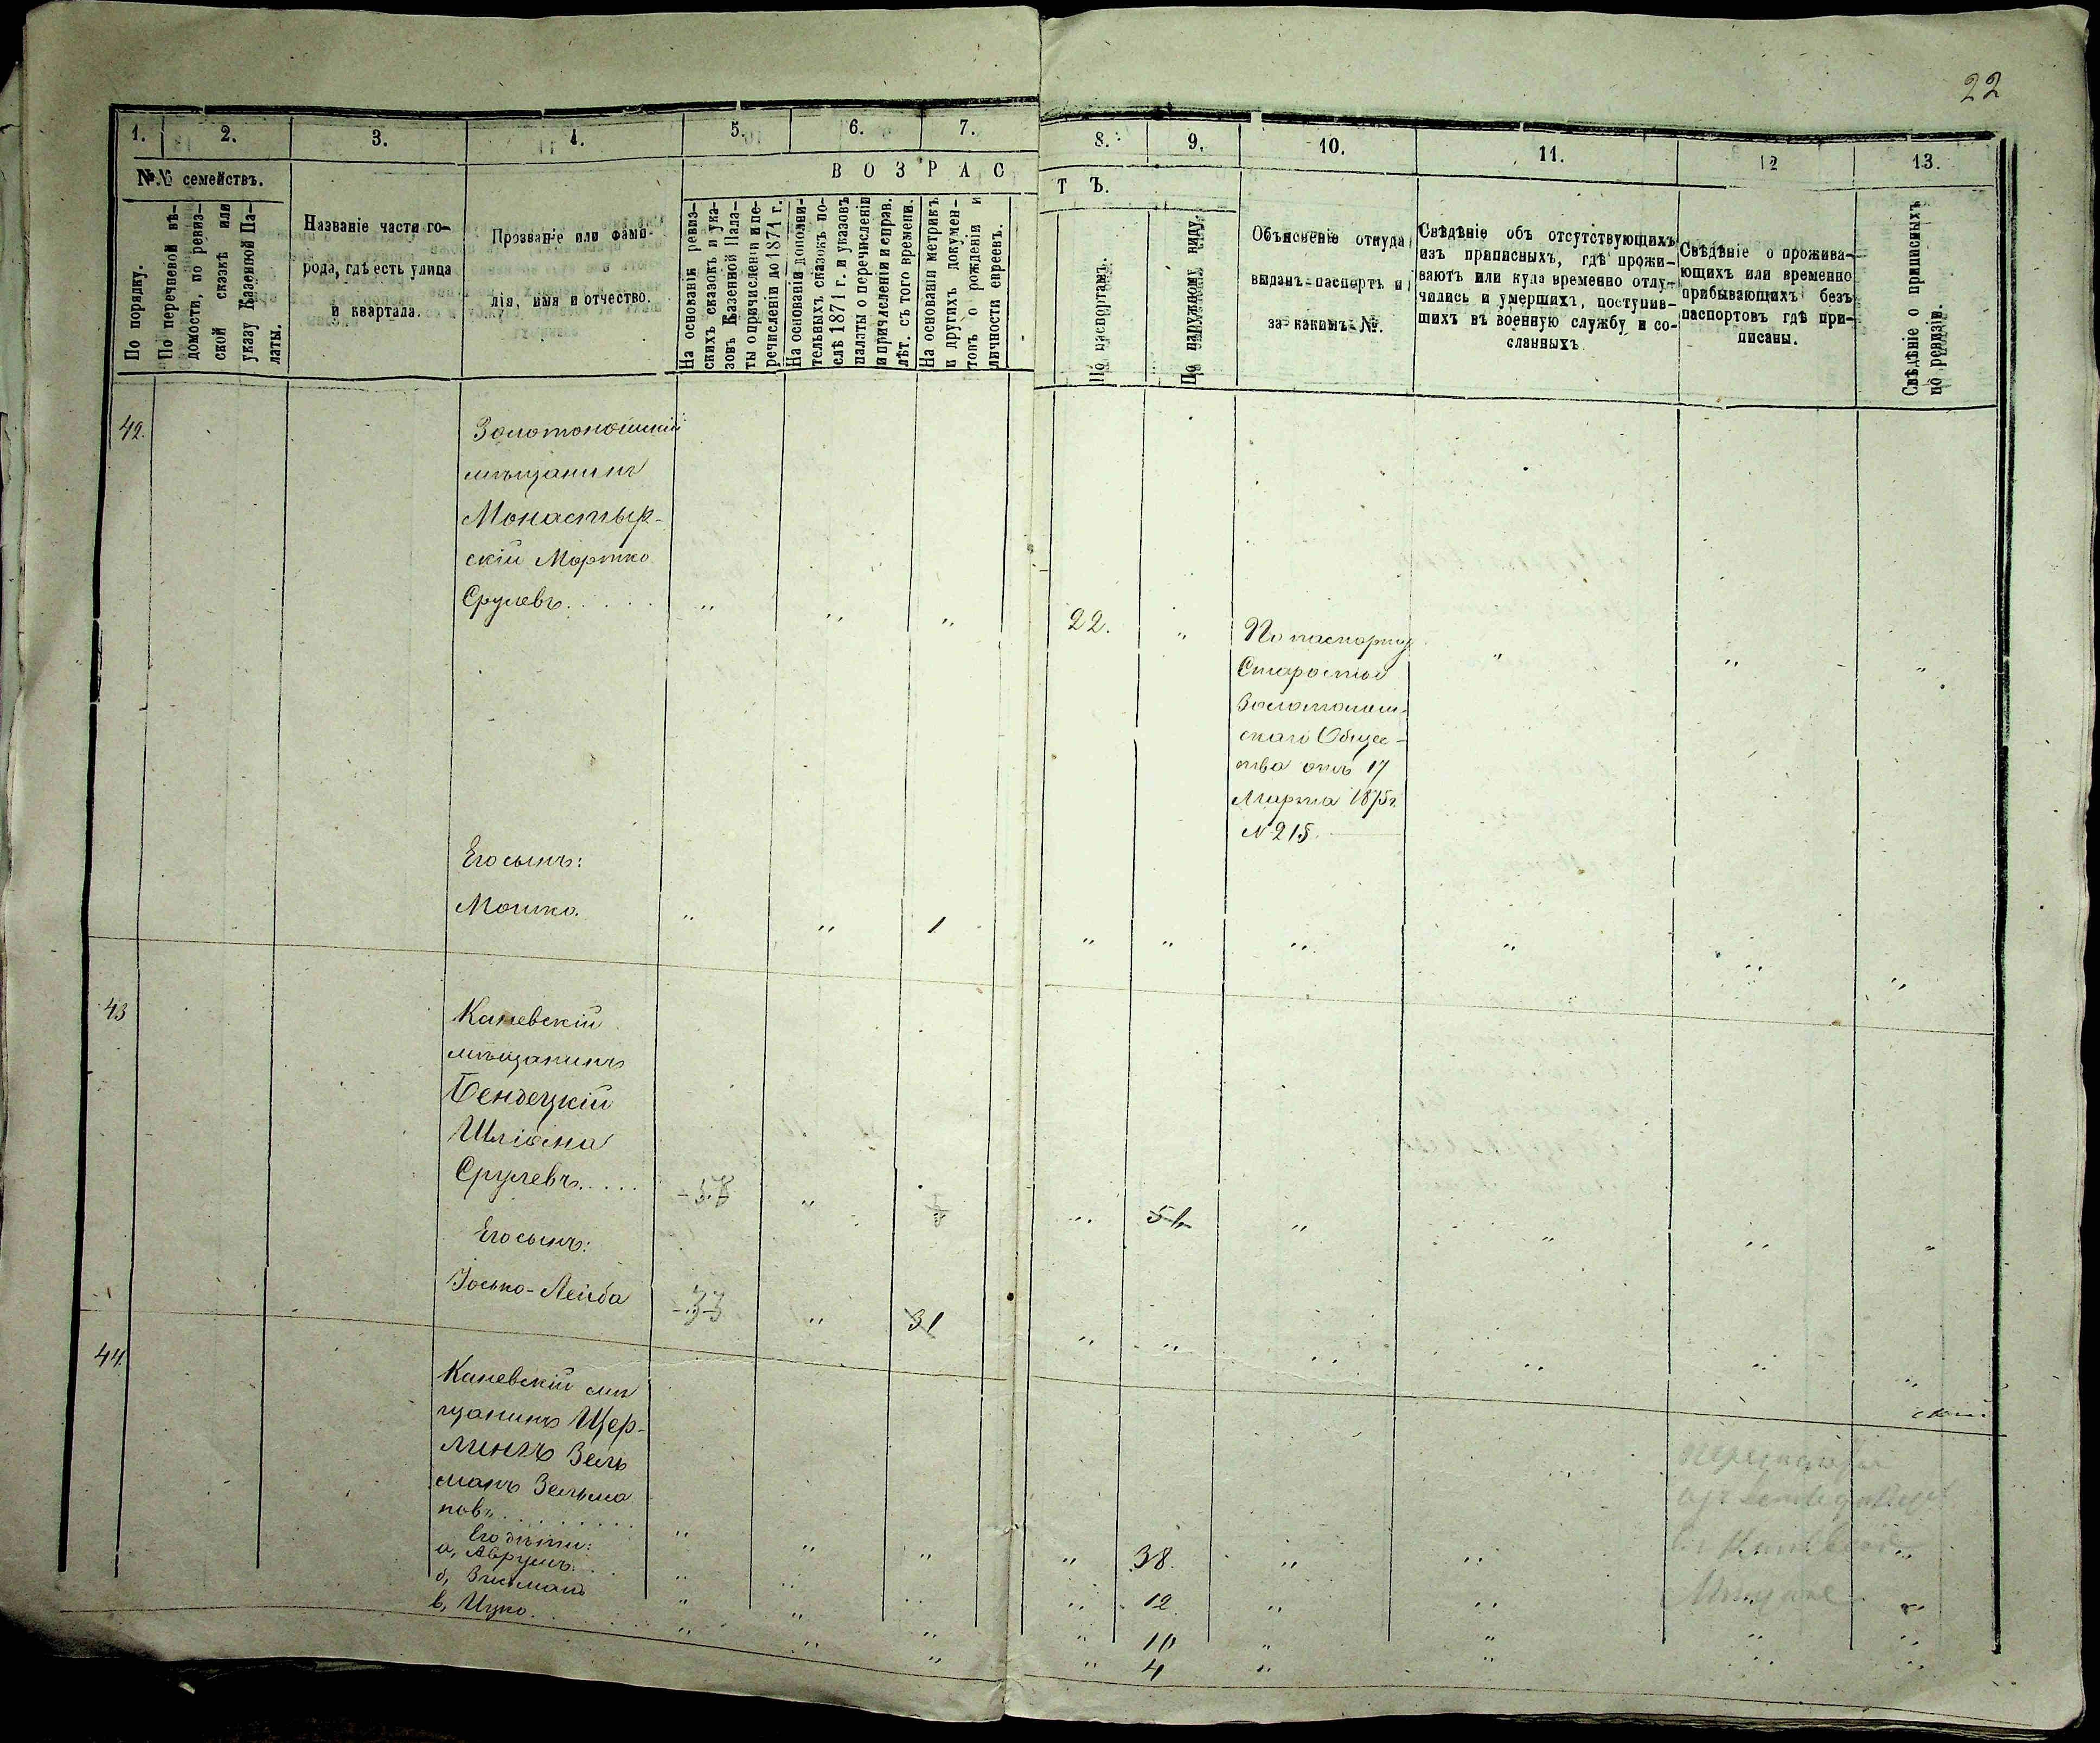 22
1. 2. 3. 4. 5. 6. 7. 8. 9. 10. 11. 12 13.
№№ семействъ.
По порядку.
По перечневой вѣ-
домости, по ревиз-
ской сказкѣ или
указу Казенной Па-
латы.
Названіе части го-
рода, гдѣ есть улица
и квартала.
Прозваніе или фами-
лія, имя и отчество.
ВОЗРАСТЪ.
На основаніи ревиз-
скихъ сказокъ и ука-
зовъ Казенной Пала-
ты о причисленіи и пе-
речисленіи до 1871 г.
На основаніи дополни-
тельныхъ сказокъ по-
слѣ 1871 г. и указовъ
палаты о перечисленіи
и причисленіи и справ.
лѣт. съ того времени.
На основаніи метрикъ
и другихъ докумен-
товъ о рожденіи и
личности евреевъ.
По паспортамъ.
По наружному виду.
Объясненіе откуда
выданъ паспортъ и
за какимъ №.
Свѣдѣніе объ отсутствующихъ
изъ приписныхъ, гдѣ прожи-
ваютъ или куда временно отлу-
чились и умершихъ, поступив-
шихъ въ военную службу и со-
сланныхъ
Свѣдѣніе о прожива-
ющихъ или временно
прибывающихъ безъ
паспортовъ гдѣ при-
писаны.
Свѣдѣніе о приписныхъ
по ревизіи.
42.
Золотоношскій
мѣщанинъ
Монастыр-
скій Мортко
Срулевъ. . . . . " " " 22. " " " "
По паспорту
Старосты
Золотонош-
скаго Общес-
тва отъ 17
Марта 1875 г.
№ 215.
Его сынъ:
Мошко. " " 1 " " " " " "
43
Каневскій
мѣщанинъ
Бендецкій
Шліома
Срулевъ. . . . 58 " " " " " " "
Его сынъ:
Іосько-Лейба 33 " 31 " " " " " "
44.
Каневскій мѣ
щанинъ Щер-
линъ Зель
манъ Зельма
новъ. . . . . " " " " 38. " " "
Его дѣти:
а, Аврумъ. . . " " " " 12. " " "
б, Зельманъ " " " " 10 " " " "
в, Ицко. . . . " " " " 4 " " " "
Каневскіе
Мѣщане